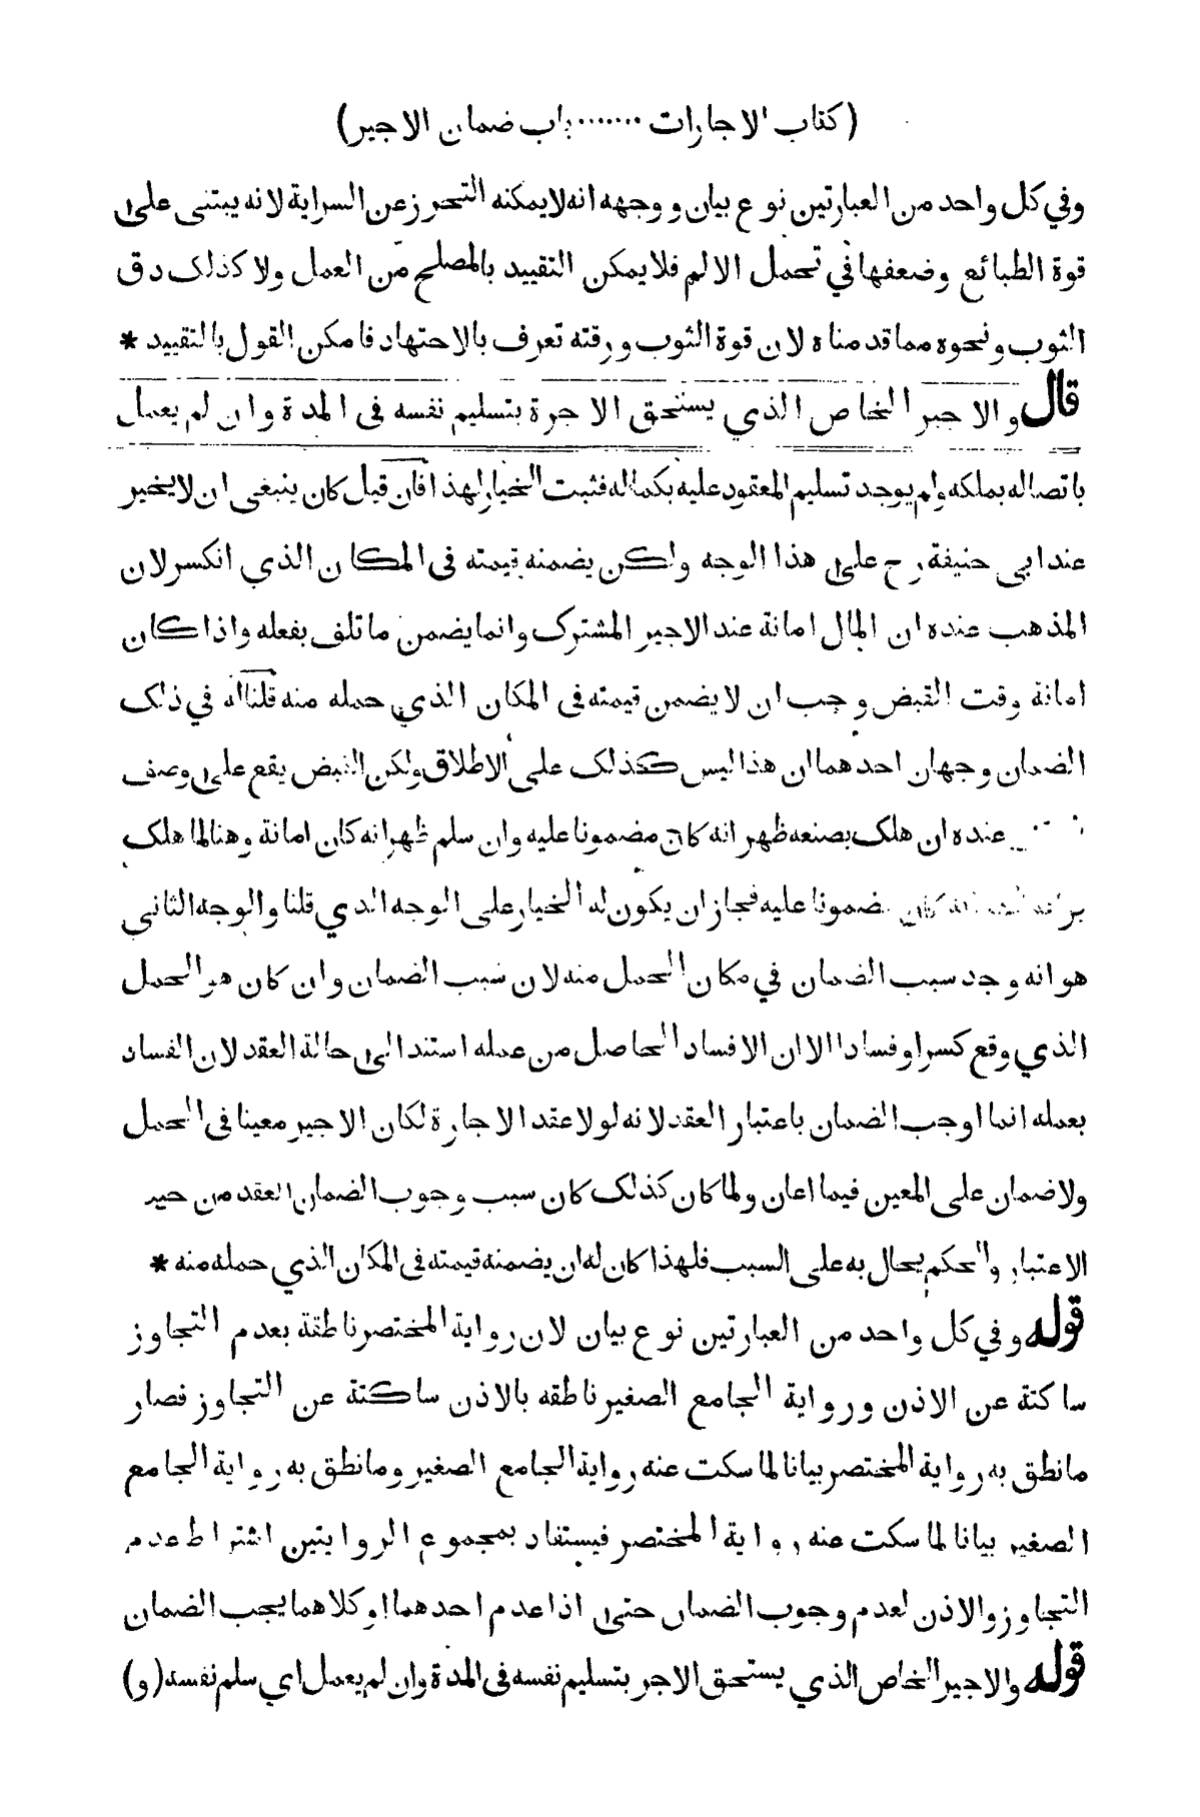 (كتاب الاجارات ······· باب ضمان الاجير)
وفي كل واحد من العبارتين نوع بيان ووجهه انه لايمكنه التحرز عن السراية لانه يبتنى على
قوة الطبائع وضعفها في تحمل الالم فلا يمكن التقييد بالمصلح من العمل ولا كذلك دق
الثوب ونحوه مما قدمناه لان قوة الثوب ورقته تعرف بالاجتهاد فامكن القول بالتقييد *
قال والاجير الخاص الذي يستحق الاجرة بتسليم نفسه فى المدة وان لم يعمل
باتصاله بملكه ولم يوجد تسليم المعقود عليه بكماله فثبت الخيار لهذا فان قيل كان ينبغى ان لا يخير
عند ابى حنيفة رح على هذا الوجه ولكن يضمنه قيمته فى المكان الذي انكسر لان
المذهب عنده ان المال امانة عند الاجير المشترك وانما يضمن ما تلف بفعله واذا كان
امانة وقت القبض وجب ان لا يضمن قيمته فى المكان الذي حمله منه قلنا له في ذلك
الضمان وجهان احدهما ان هذا ليس كذلك على الاطلاق ولكن القبض يقع على وصف
عنده ان هلك بصنعه ظهر انه كان مضمونا عليه وان سلم ظهر انه كان امانة وهنا لما هلك
كان مضمونا عليه فجاز ان يكون له الخيار على الوجه الذي قلنا والوجه الثانى
هو انه وجد سبب الضمان في مكان الحمل منه لان سبب الضمان وان كان هو الحمل
الذي وقع كسرا وفسادا الا ان الافساد الحاصل من عمله استند الى حالة العقد لان الفساد
بعمله انما اوجب الضمان باعتبار العقد لانه لولا عقد الاجارة لكان الاجير معينا فى الحمل
ولا ضمان على المعين فيما اعان ولما كان كذلك كان سبب وجوب الضمان العقد من حيـ
الاعتبار والحكم يحال به على السبب فلهذا كان له ان يضمنه قيمته فى المكان الذي حمله منه *
قوله وفي كل واحد من العبارتين نوع بيان لان رواية المختصر ناطقة بعدم التجاوز
ساكتة عن الاذن ورواية الجامع الصغير ناطقه بالاذن ساكتة عن التجاوز فصار
ما نطق به رواية المختصر بيانا لما سكت عنه رواية الجامع الصغير وما نطق به رواية الجامع
الصغير بيانا لما سكت عنه رواية المختصر فيستفاد بمجموع الروايتين اشتراط عدم
التجاوز والاذن لعدم وجوب الضمان حتى اذا عدم احدهما او كلاهما يجب الضمان
قوله والاجير الخاص الذي يستحق الاجر بتسليم نفسه فى المدة وان لم يعمل اي سلم نفسه (و)